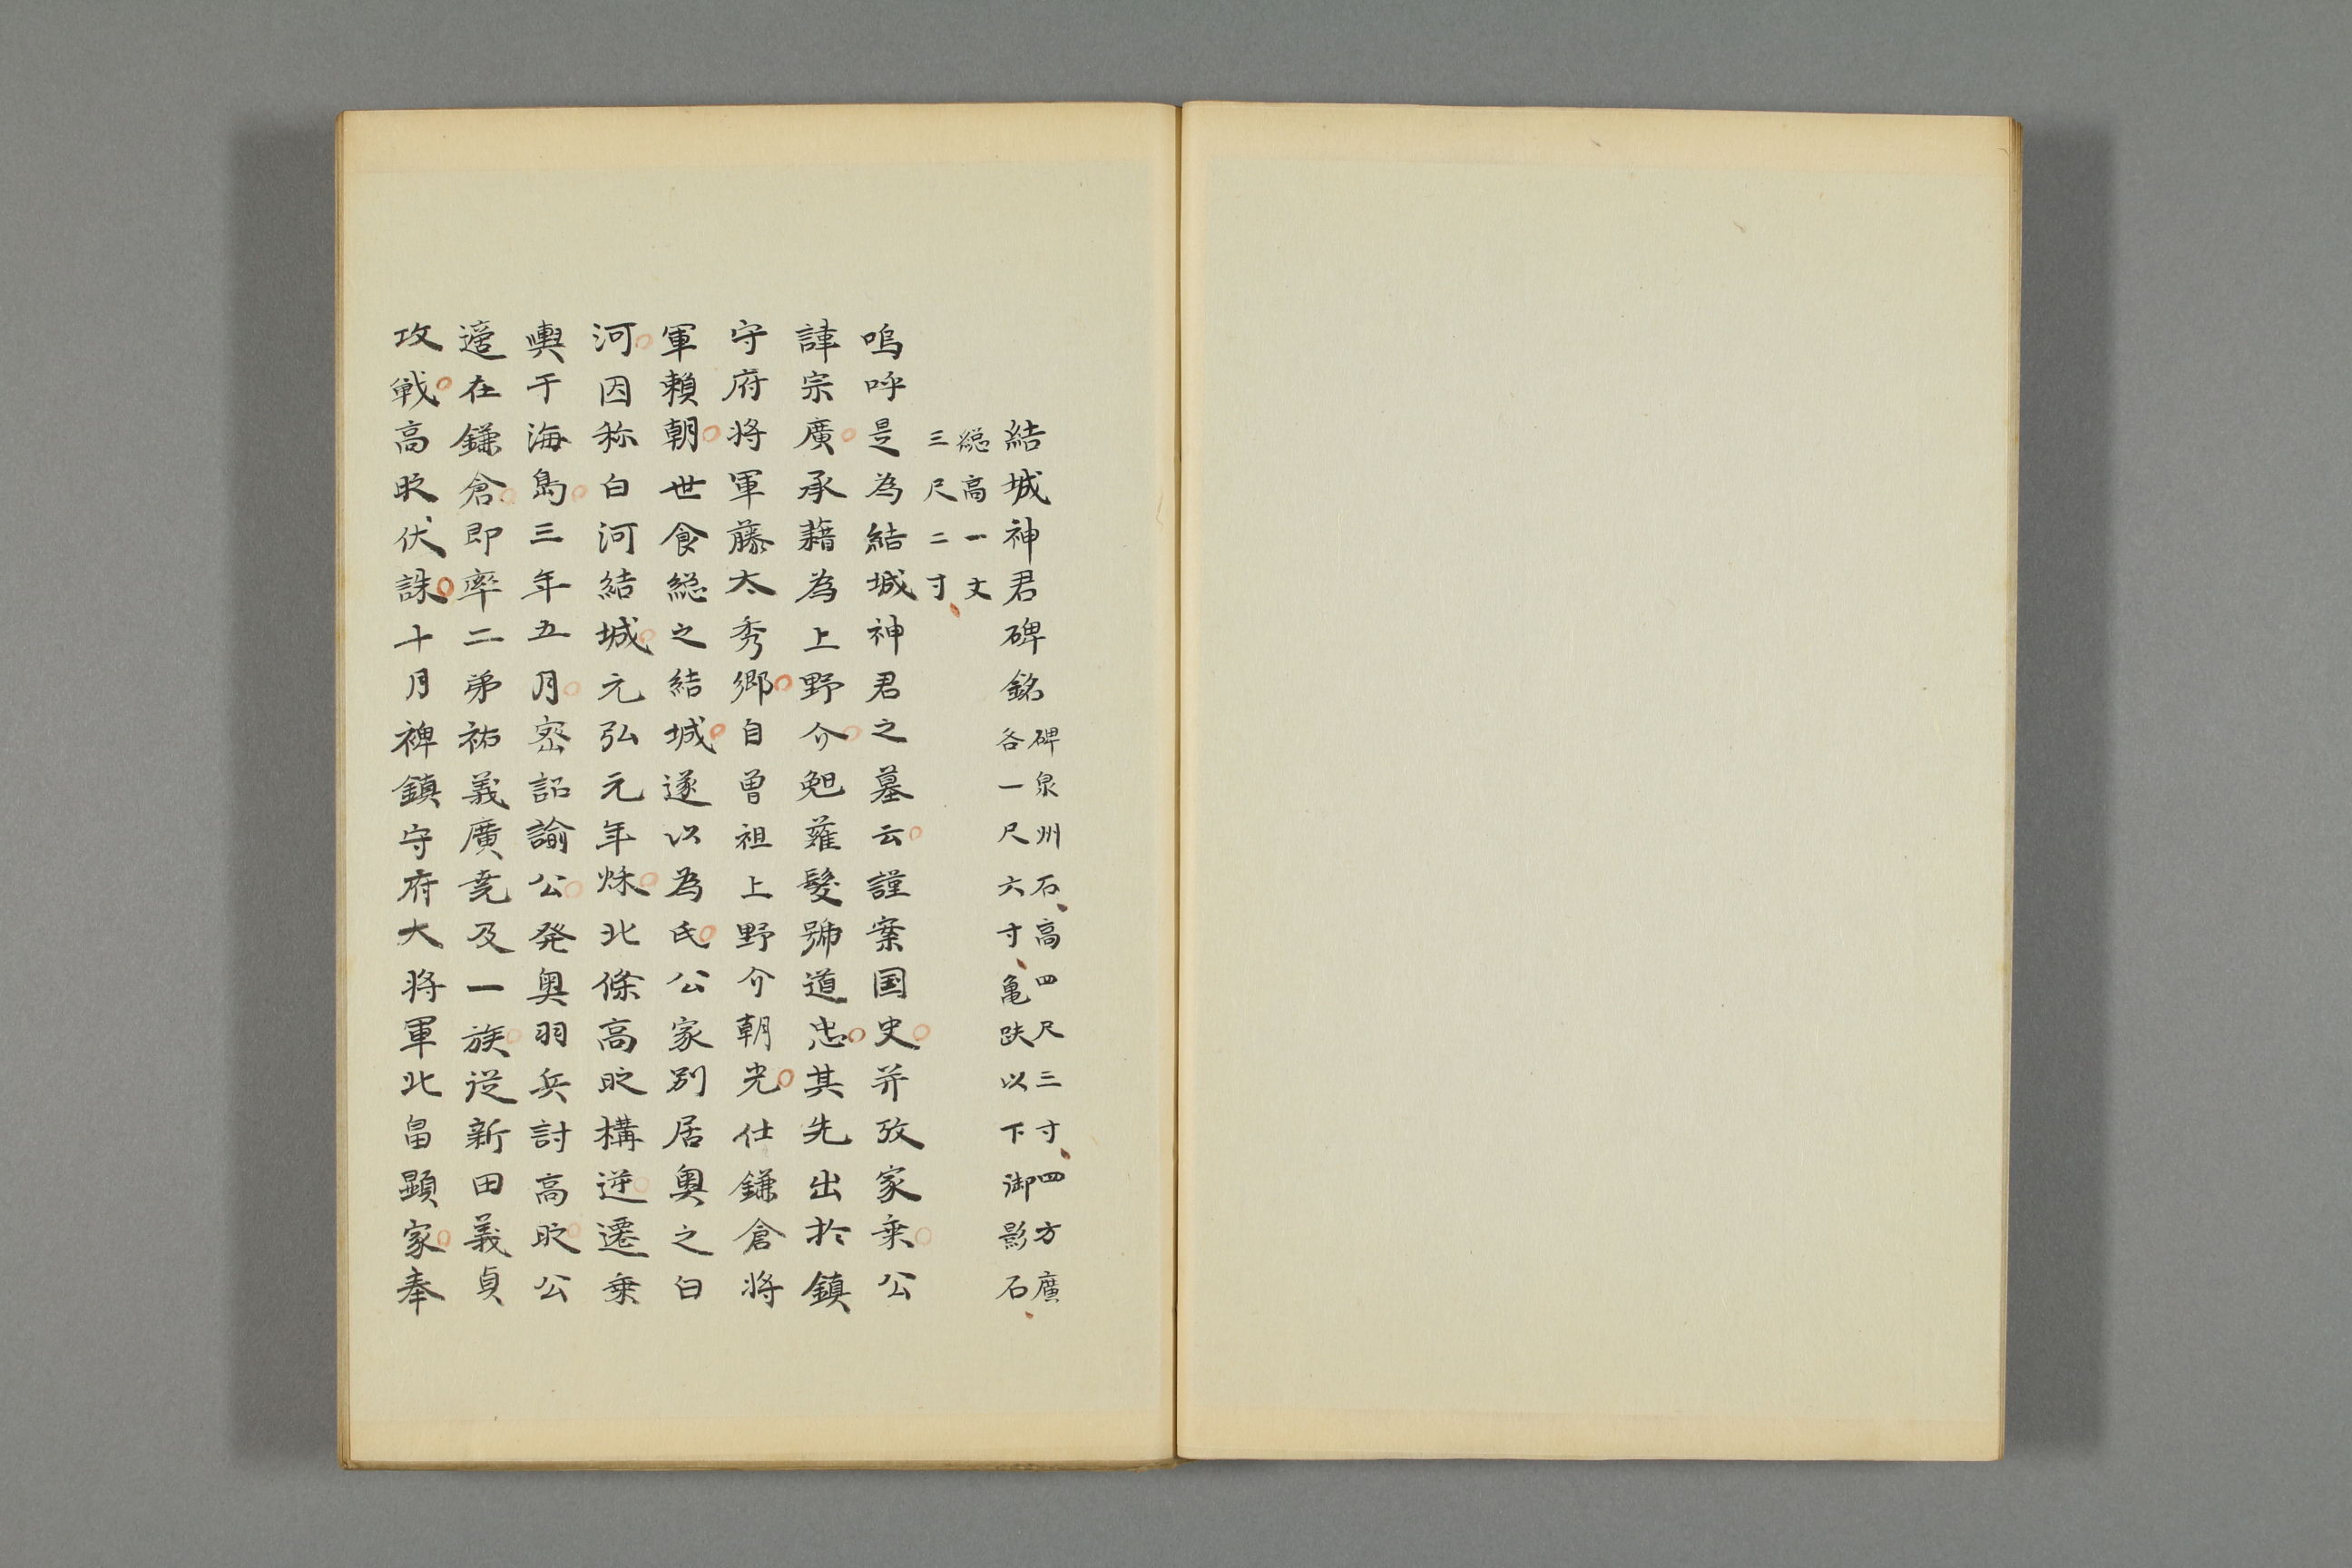 結城神君碑銘
碑泉州石高四尺三寸四方廣
各一尺六寸亀趺以下御影石
総高一丈
三尺二寸
嗚呼是為結城神君之墓云謹案国史并攷家乗公
諱宗廣承藉為上野介薙髪號道忠其先出於鎮
守府将軍藤太秀郷自曽祖上野介朝光仕鎌倉将
軍頼朝世食総之結城遂以為氏公家別居奥之白
河因称白河結城元弘元年秌北條高時構逆遷乗
輿于海島三年五月密詔諭公発奥羽兵討高時公
適在鎌倉即率二弟祐義廣尭及一族従新田義貞
攻戦高時伏誅十月裨鎮守府大将軍北畠顕家奉